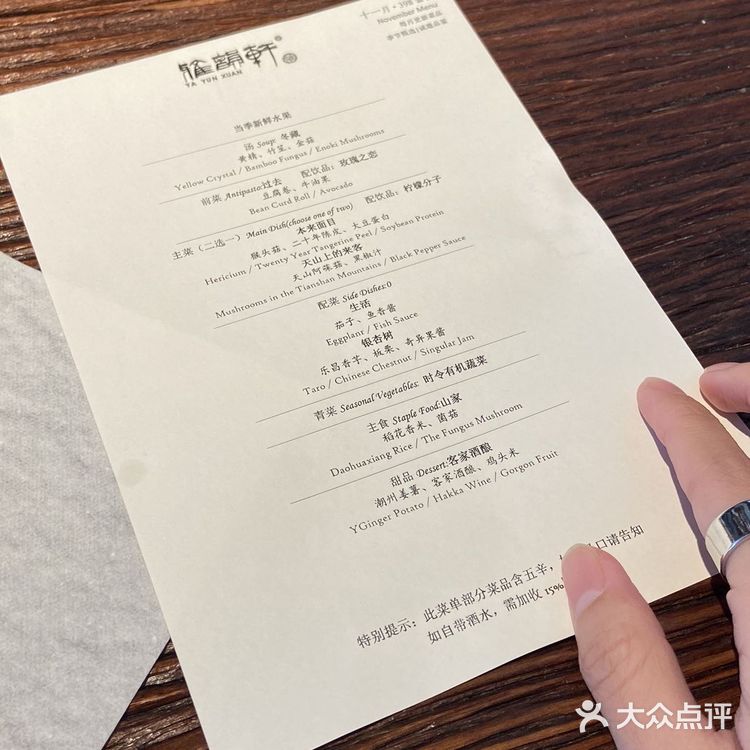 雅韵軒
YA YUN XUAN
十一月·398
November Menu
每月更新菜品
当季新鲜水果
汤 Soup: 冬藏
黄精、竹荪、金菇
Yellow Cryrtal / Bamboo Fungus / Enoki Mushrooms
前菜 Antipasto:过去 配饮品：玫瑰之恋
豆腐卷、牛油果
Bean Curd Roll / Avocado
主菜（二选一）Main Dish(choose one of two) 配饮品：柠檬分子
本来面目
猴头菇、二十年陈皮、大豆蛋白
Hericium / Twenty Year Tangerine Peel / Soybean Protein
天山上的来客
天山阿魏菇、黑椒汁
Mushrooms in the Tianshan Mountains / Black Pepper Sauce
配菜 Side Dishes:0
生活
茄子、鱼香酱
Eggplant / Fish Sauce
银杏树
乐昌香芋、板栗、奇异果酱
Taro / Chinese Chestnut / Singular Jam
青菜 Seasonal Vegetables: 时令有机蔬菜
主食 Staple Food:山家
稻花香米、菌菇
Daohuaxiang Rice / The Fungus Mushroom
甜品 Dessert:客家酒酿
潮州姜薯、客家酒酿、鸡头米
YGinger Potato / Hakka Wine / Gorgon Fruit
特别提示：此菜单部分菜品含五辛，口请告知
如自带酒水，需加收 15%
大众点评